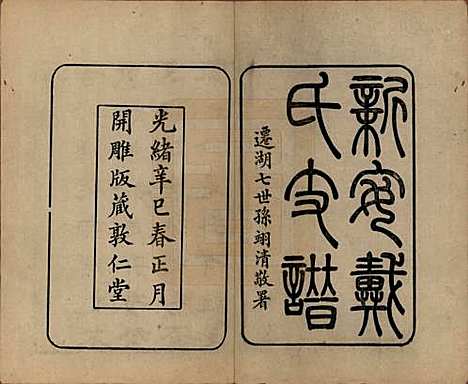 新安戴
氏支譜
遷湖七世孫翊清敬署
光緒辛巳春正月
開雕版藏敦仁堂